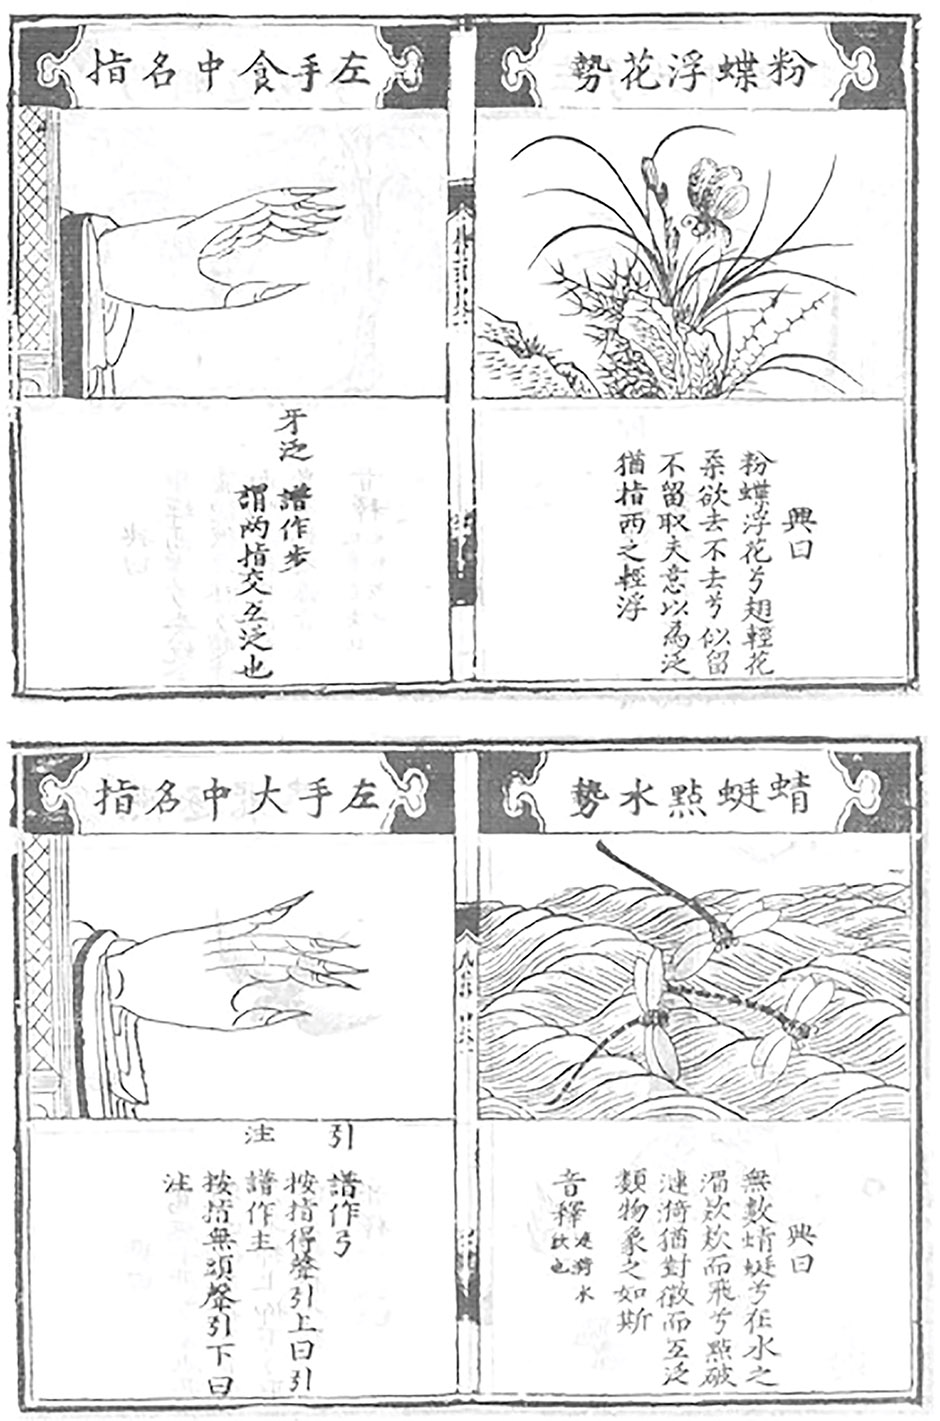 粉蝶浮花勢
興曰
粉蝶浮花兮翅輕花
柔欲去不去兮似留
不留取夫意以為泛
猶指面之輕浮
左手食中名指
牙泛
譜作步
謂两指交互泛也
蜻蜓點水勢
興曰
無數蜻蜓兮在水之
湄欻欻而飛兮點破
漣漪猶對徽而互泛
類物象之如斯
音釋
漪水
也
左手大中名指
引
譜作弓
按指得聲引上曰引
注
譜作主
按指無頭聲引下曰
注